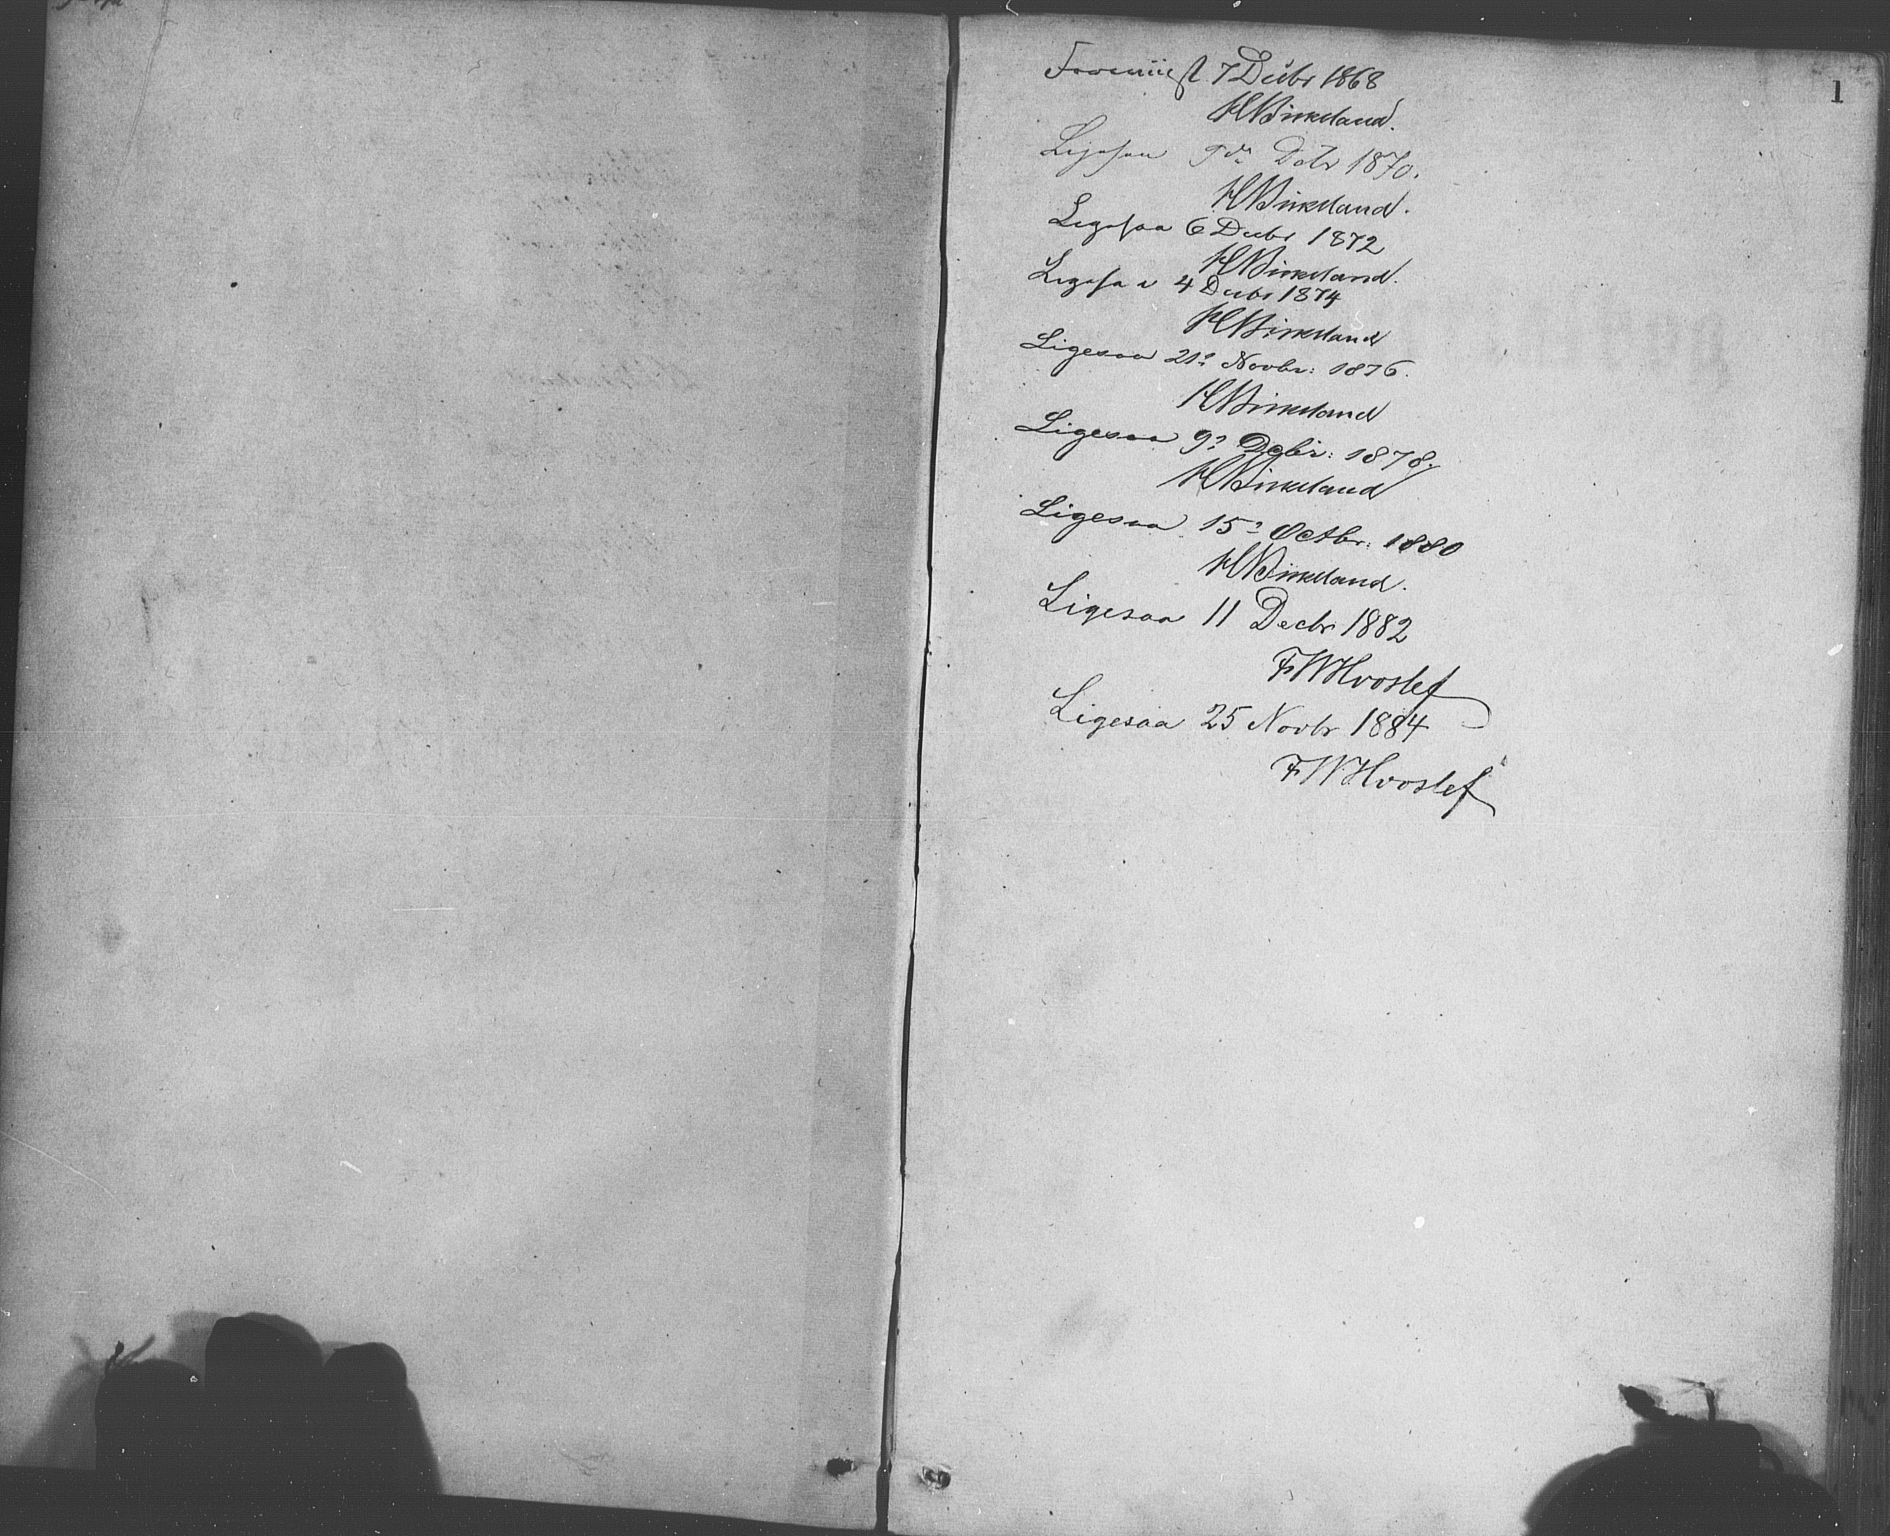 1
Forevist 7 Decbr 1868
HBirkeland.
Ligesaa 9de Dcbr 1870.
HBirkeland.
Ligesaa 6 Decbr 1872
HBirkeland.
Ligesaa 4 Decbr 1874
HBirkeland
Ligesaa 21. Novbr: 1876.
HBirkeland
Ligesaa 9. Dcbr: 1878.
HBirkeland
Ligesaa 15. Octbr: 1880
HBirkeland.
Ligesaa 11 Decbr 1882
FWHvoslef
Ligesaa 25 Novbr 1884
FWHvoslef